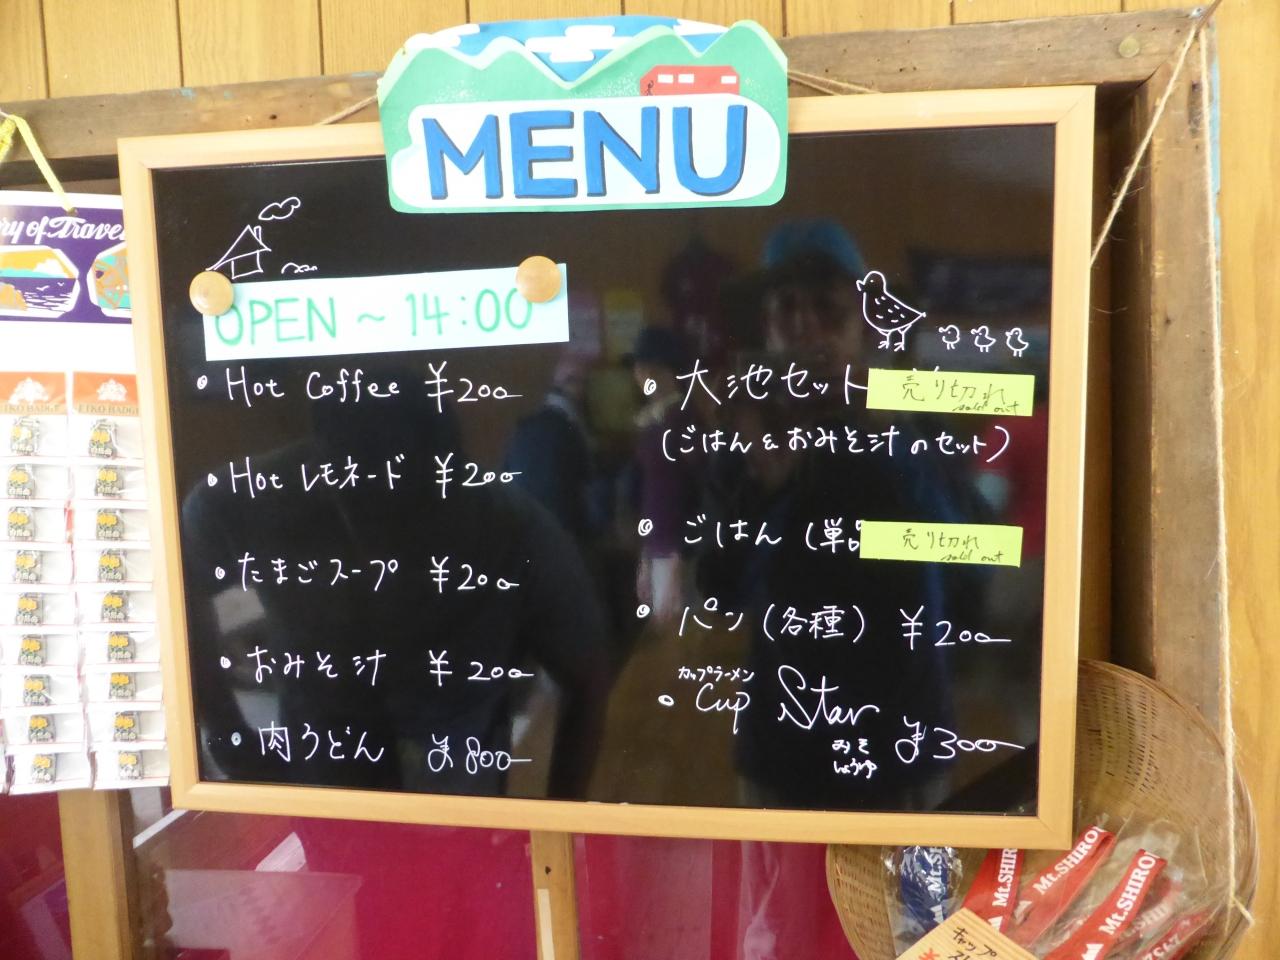 MENU
OPEN ~ 14:00
Hot Coffee ¥200
Hot レモネード ¥200
たまごスープ ¥200
おみそ汁 ¥200
肉うどん ¥800
大池セット
売り切れ
sold out
(ごはん&おみそ汁のセット)
ごはん (単品
売り切れ
sold out
パン (各種) ¥200
カップラーメン
Cup Star
みそ
しょうゆ
¥300
ry of Travel
EIKO BADGE
EIKO BADGE
Mt.SHIRO
Mt.SHIRO
Mt.SHIRO
キャップ